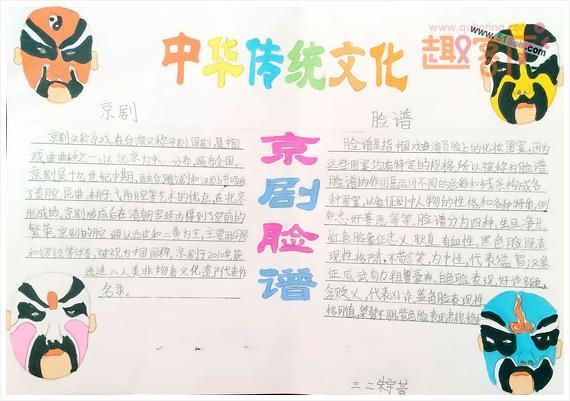 中华传统文化
京剧
京剧又称京戏,在台湾又称平剧、国剧,是中国
戏曲曲种之一,以北京为中心,分布,遍布全国。
京剧是十九世纪中期,融合了徽剧和汉剧,并吸收
了秦腔、昆曲、梆子、弋阳腔等艺术的优点,在北京
形成的。京剧形成后在清朝宫廷内得到了空前的
繁荣。京剧的腔调以西皮和二黄为主,主要用胡琴
和锣鼓等伴奏,被视为中国国粹,京剧于2010年获
选进入人类非物质文化遗产代表作
名录。
京剧脸谱
脸谱
脸谱是指中国戏曲演员脸上的化妆图案,因为
这些图案均有特定的规格,所以被称为脸谱
脸谱的作用是运用不同的色彩和线条构成各
种图案,以象征剧中人物的性格和各种特质,例
如忠、奸、善、恶等等。脸谱分为四种,生、旦、净、丑
红色脸象征忠义、耿直、有血性,黑色脸既表
现性格严肃,不苟言笑,为中性,代表猛智;又象
征威武有力、粗鲁豪爽,白色脸表现奸诈多疑,
含贬义,代表凶诈,蓝色脸表现性
格刚直,桀骜不驯,紫色脸表现肃穆
三二朱宇
趣客